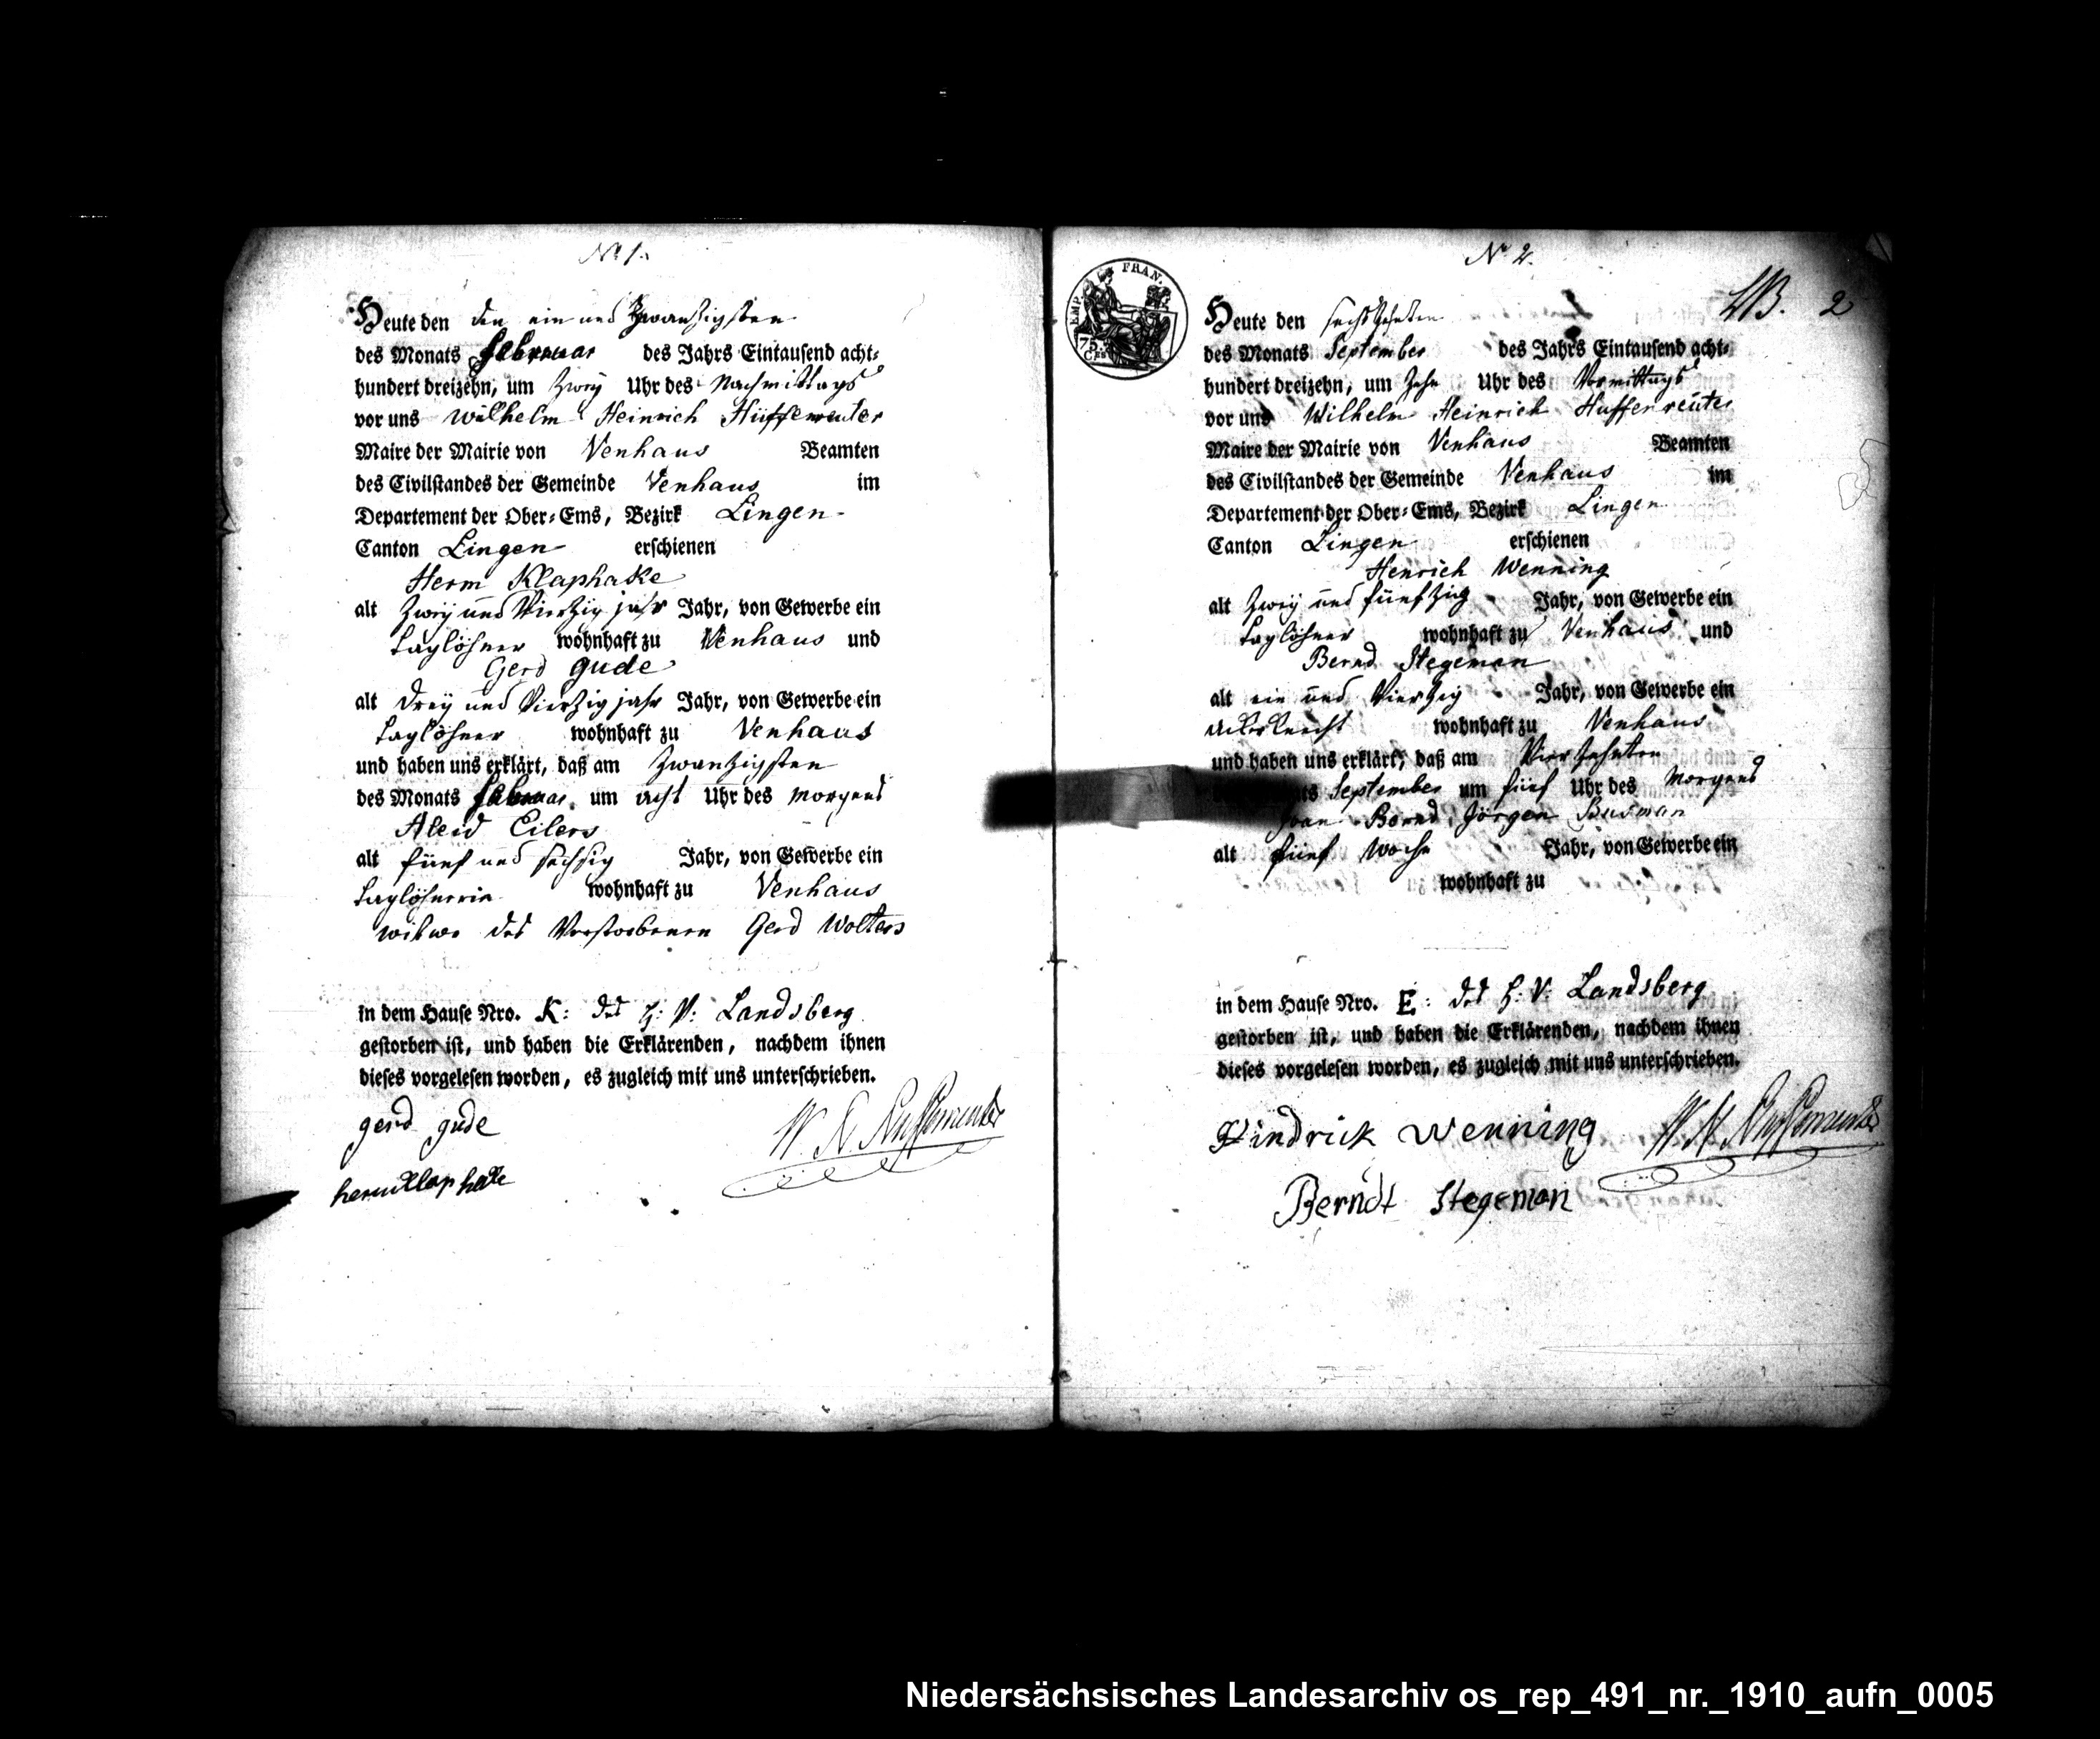 No 1.
Heute den den ein und zwanzigsten
des Monats februar des Jahrs Eintausend acht-
hundert dreizehn, um zweÿ Uhr des Nachmittags
vor uns Wilhelm Heinrich Hüffenreuter
Maire der Mairie von Venhaus Beamten
des Civilstandes der Gemeinde Venhaus im
Departement der Ober-Ems, Bezirk Lingen
Canton Lingen erschienen
Herm Klaphake
alt zweÿ und Vierzig jahr Jahr, von Gewerbe ein
taglöhner wohnhaft zu Venhaus und
Gerd gude
alt dreÿ und Vierzig jahr Jahr, von Gewerbe ein
taglöhner wohnhaft zu Venhaus
und haben uns erklärt, daß am zwanzigsten
des Monats februar um acht Uhr des morgens
Aleid Eilers
alt fünf und sechsig Jahr, von Gewerbe ein
taglöhnerin wohnhaft zu Venhaus
witwe des Verstorbenen Gerd Wolters
in dem Hause Nro. K: des H: V: Landsberg
gestorben ist, und haben die Erklärenden, nachdem ihnen
dieses vorgelesen worden, es zugleich mit uns unterschrieben.
gerd gude
W. H. Hüffenreuter
herm klaphake
EMP. FRAN.
75.
CES
No 2.
2
Heute den sechszehnten
des Monats September des Jahrs Eintausend acht-
hundert dreizehn, um zehn Uhr des Vormittags
vor uns Wilhelm Heinrich Huffenreuter
Maire der Mairie von Venhaus Beamten
des Civilstandes der Gemeinde Venhaus im
Departement der Ober-Ems, Bezirk Lingen
Canton Lingen erschienen
Henrich Wenning
alt zweÿ und fünfzig Jahr, von Gewerbe ein
taglöhner wohnhaft zu Venhaus und
Bernd Stegeman
alt ein und Vierzig Jahr, von Gewerbe ein
ackerknecht wohnhaft zu Venhaus
und haben uns erklärt, daß am Vierzehnten
September um fünf Uhr des Morgens
Joan Bernd Jörgen Busman
alt fünf Woche Jahr, von Gewerbe ein
wohnhaft zu
in dem Hause Nro. E: des H: V: Landsberg
gestorben ist, und haben die Erklärenden, nachdem ihnen
dieses vorgelesen worden, es zugleich mit uns unterschrieben.
Hindrick Wenning W. H. Hüffenreuter
Berndt Stegeman
Niedersächsisches Landesarchiv os_rep_491_nr._1910_aufn_0005